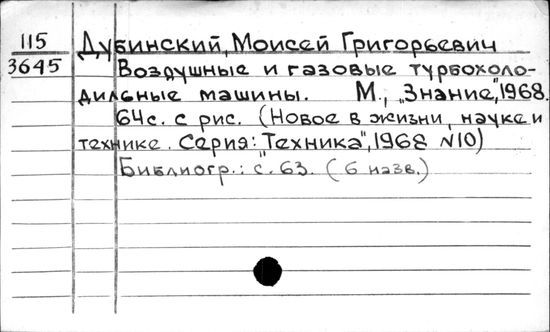 115 Дубинский, Моисей Григорьевич
3645 Воздушные и газовые турбохоло-
дильные машины. М., „Знание", 1968.
64с. с рис. (Новое в жизни, науке и
технике. Серия: „Техника", 1968 №10)
Библиогр.: с. 63. (6 назв.)